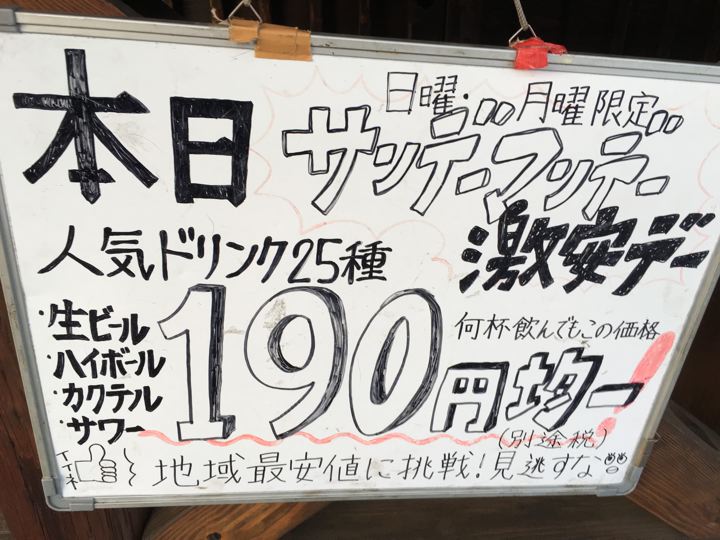 本日
日曜・月曜限定
サンデーマンデー
激安デー
人気ドリンク25種
・生ビール
・ハイボール
・カクテル
・サワー
190円均一！
何杯飲んでもこの価格
(別途税)
イイネ
地域最安値に挑戦！見逃すな